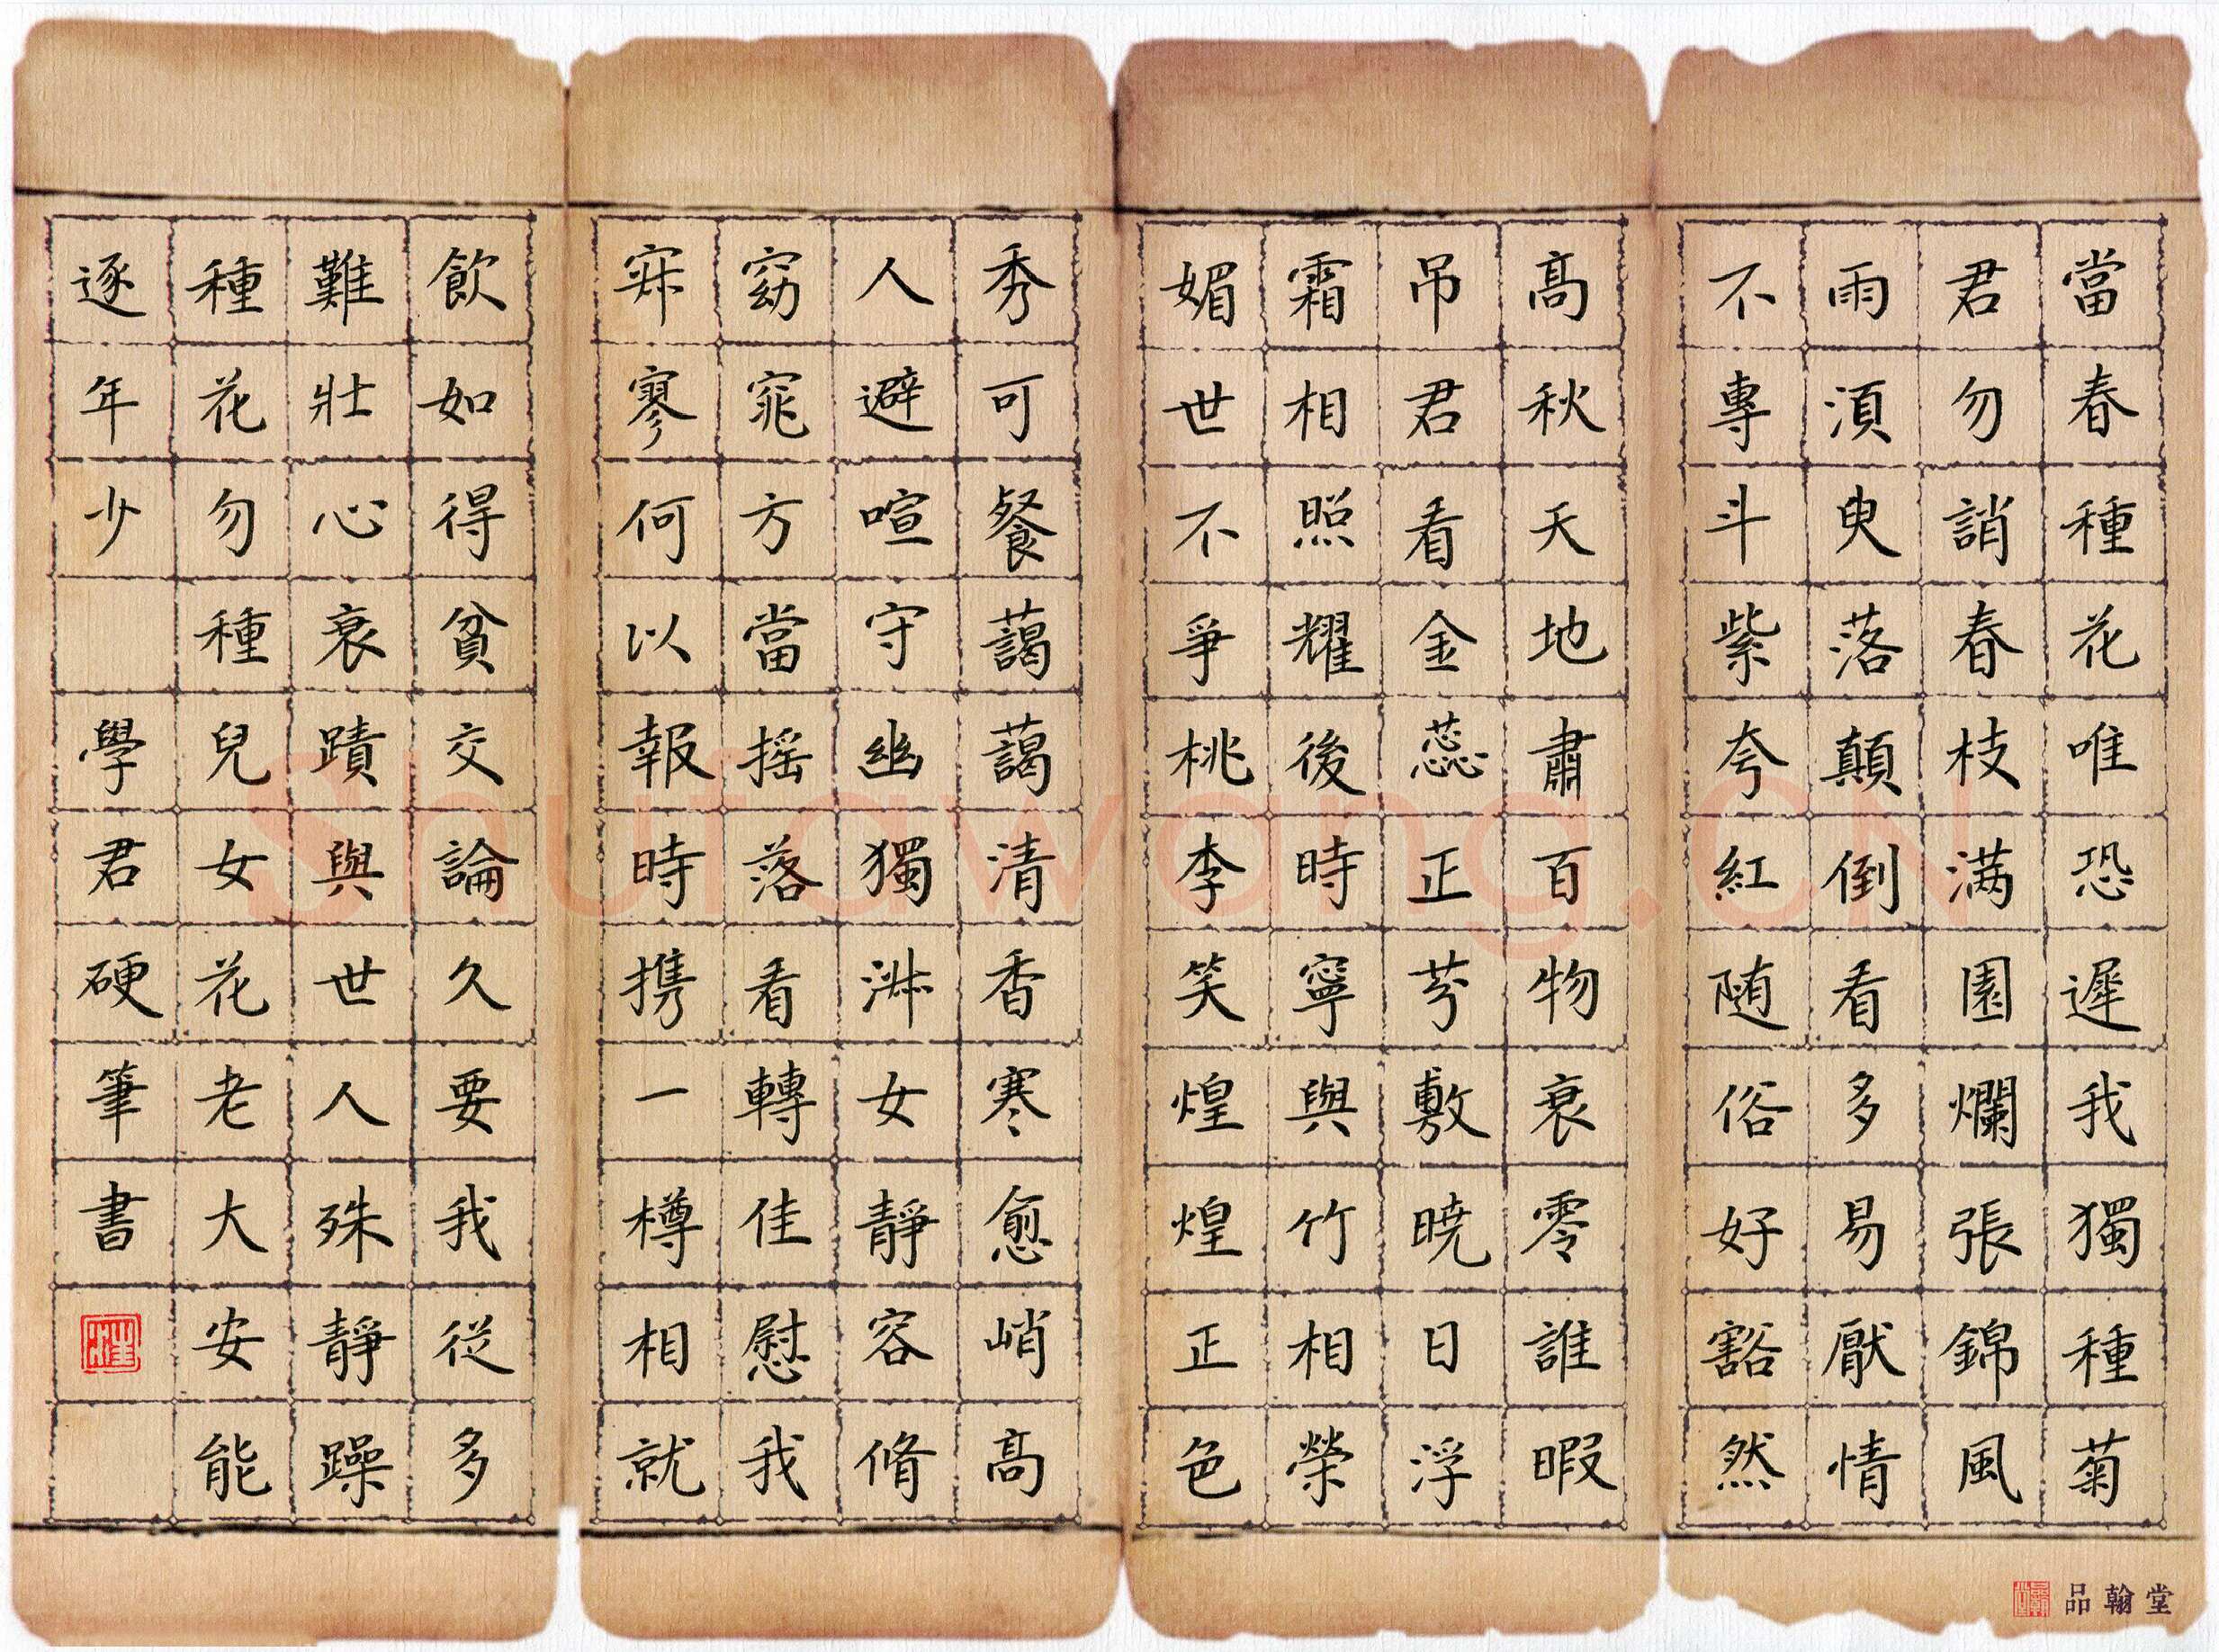 當春種花唯恐遲我獨種菊
君勿誚春枝滿園爛張錦風
雨湏臾落顛倒看多易厭情
不專斗紫夸紅随俗好豁然
高秋天地肅百物衰零誰暇
吊君看金蕊正芬敷曉日浮
霜相照耀後時寧與竹相榮
媚世不爭桃李笑煌煌正色
秀可餐藹藹清香寒愈峭高
人避喧守幽獨淋女靜容脩
窈窕方當摇落看轉佳慰我
寂寥何以報時携一樽相就
飲如得貧交論久要我從多
難壯心衰蹟與世人殊靜躁
種花勿種兒女花老大安能
逐年少
學君硬筆書
品翰堂
Shufawang.CN